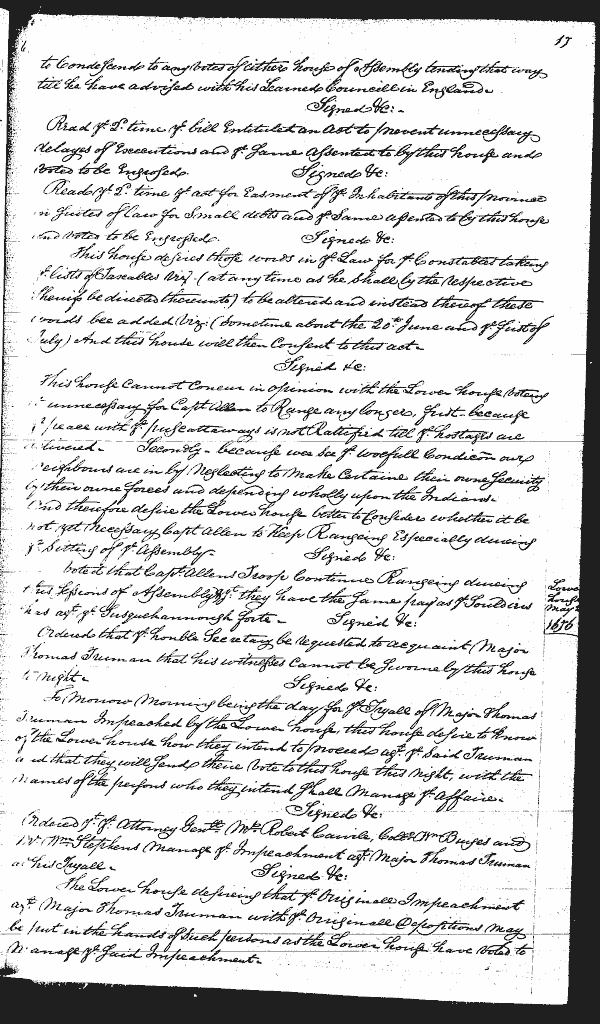 17
to Condescend to any votes of either house of Assembly tending that way
till he have advised with his Learned Councill in England.
Signed &c:-
Read ye 2d: time ye bill Entituled an Act to prevent unnecessary
delayes of Executions and ye Same Assented to by this house and
voted to be Engrossed. Signed &c:
Read ye 2d: time ye act for Easment of ye Inhabitants of this province
in Suites of law for Small debts and ye Same assented to by this house
and voted to be Engrossed. Signed &c:
This house desires those words in ye Law for ye Constables taking
ye lists of Taxables Viz: (at any time as he Shall by the respective
Sheriff be directed thereunto) to be altered and instead thereof these
words bee added Viz: (Sometime about the 20th June and ye first of
July) And this house will then Consent to this act-
Signed &c:
This house Cannot Concur in opinion with the Lower house voteing
it unnecessary for Capt Allen to Range any longer, first because
ye peace with ye puscattaways is not Rattified till ye hostages are
delivered- Secondly- because wee see ye woefull Condicõn our
neighbours are in by Neglecting to Make Certaine their owne Security
by their owne forces and depending wholly upon the Indians.
And therefore desire the Lower house better to Consider whether it be
not yet necessary Capt Allen to Keep Rangeing Especially dureing
ye Sitting of ye Assembly Signed &c:
Voted that Capt: Allens Troop Continue Rangeing dureing
this Sessions of Assembly & yt they have the Same pay as ye Souldiers
has agt ye Susquehannough forte- Signed &c:
Lower
house
May
1676
Ordered that ye honble Secretary be requested to acquaint Major
Thomas Truman that his witnesses Cannot be Sworne by this house
to night. Signed &c:
To Morrow Morning being the day for ye Tryall of Major Thomas
Truman Impeached by the Lower house, this house desire to Know
of the Lower house how they intend to proceed agt. ye Said Truman
and that they will Send their vote to this house this night, with the
names of the persons who they intend Shall Manage ye Affaire.
Signed &c:
Ordered yt ye Attorney Genll Mr. Robert Carvile, Coll: Wm Burges and
Mr. Wm Stephens Manage ye Impeachment agt. Major Thomas Truman
at his Tryall- Signed &c:
The Lower house desireing that ye Originall Impeachment
agt. Major Thomas Truman with ye Originall Depositions may
be put in the hands of Such persons as the Lower house have Voted to
Manage ye Said Impeachment.